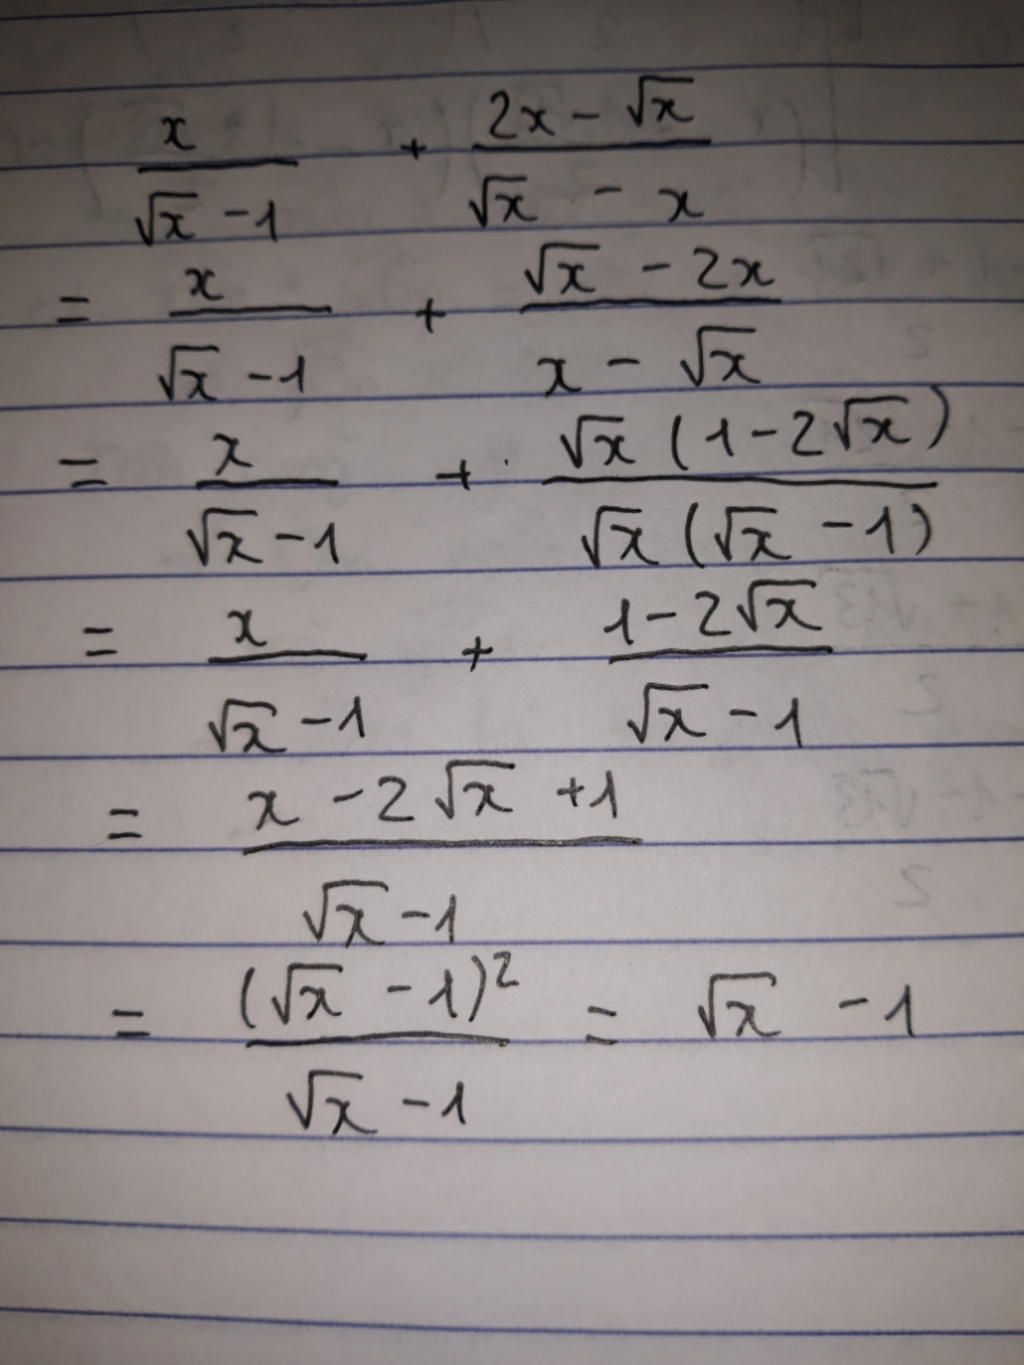 x/(√x - 1) + (2x - √x)/(√x - x)
= x/(√x - 1) + (√x - 2x)/(x - √x)
= x/(√x - 1) + √x(1 - 2√x)/(√x(√x - 1))
= x/(√x - 1) + (1 - 2√x)/(√x - 1)
= (x - 2√x + 1)/(√x - 1)
= (√x - 1)²/(√x - 1) = √x - 1